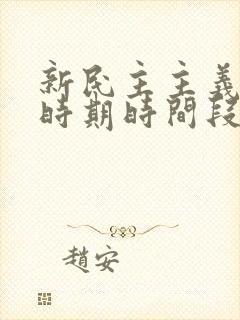 新民主主義
時期時間段
趙安